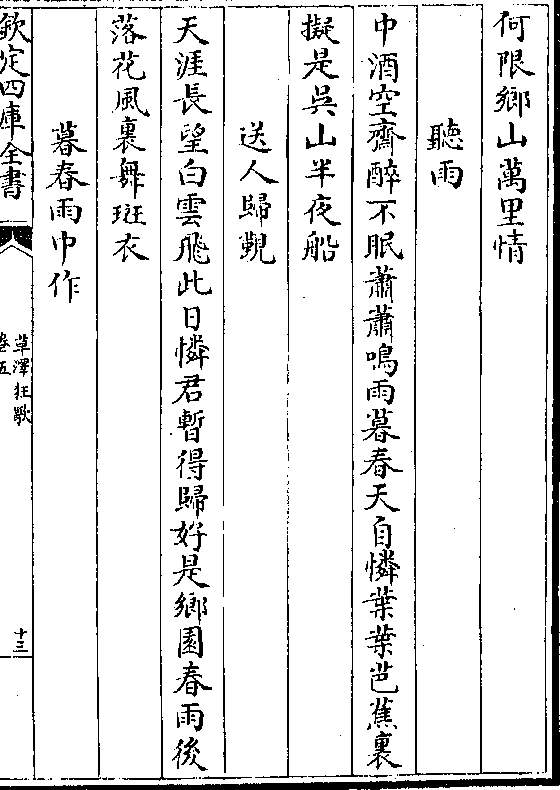 何限鄉山萬里情
聽雨
中酒空齋醉不眠蕭蕭鳴雨暮春天自憐葉葉芭蕉裏
擬是吳山半夜船
送人歸覲
天涯長望白雲飛此日憐君暫得歸好是鄉園春雨後
落花風裏舞斑衣
暮春雨中作
欽定四庫全書
草澤狂歌
卷五
十三